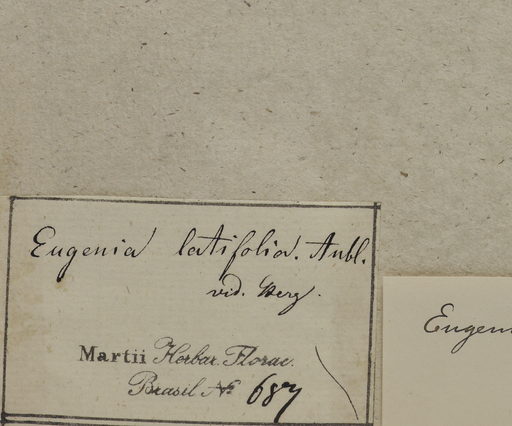 Eugenia latifolia. Aubl.
vid. Berg.
Martii Herbar. Florae
Brasil No 687
Eugeni